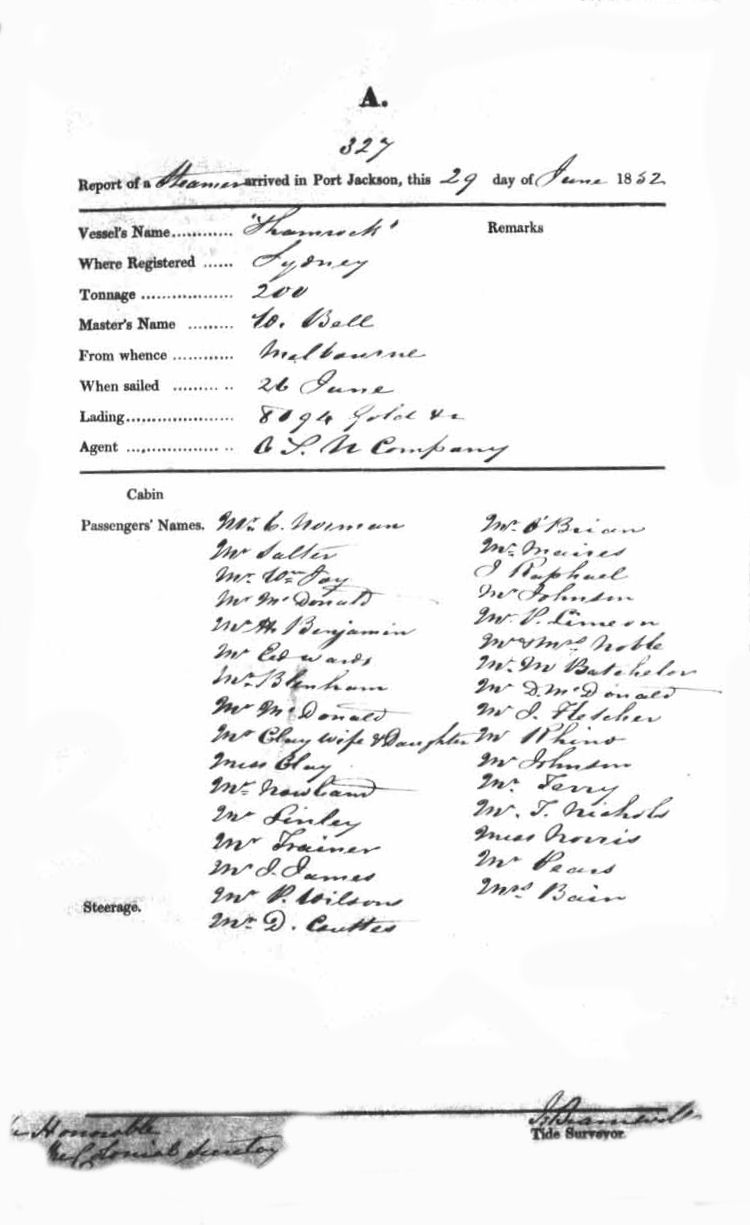 A.
327
Report of a Steamer arrived in Port Jackson, this 29 day of June 1852
Vessel's Name............ "Shamrock"
Remarks
Where Registered ...... Sydney
Tonnage .................. 200
Master's Name ......... W. Bell
From whence ............ Melbourne
When sailed ........... 26 June
Lading...................... Gold &c
Agent ..................... A S. N Company
Cabin
Passengers' Names.
Mr. C. Norman
Mr Salter
Mr. Wm Joy
Mr McDonald
Mr H. Benjamin
Mr Edwards
Mr Blenham
Mr McDonald
Mr Clay wife & Daughter
Miss Clay
Mr. Newland
Mr Linley
Mr Trainer
Mr J. James
Mr P. Wilson
Mr. D. Couttes
Mr. O'Brian
Mr. Maires
J Raphael
Mr Johnson
Mr. P. Simeon
Mr & Mrs Noble
Mr. M Batchelor
Mr D. McDonald
Mr J. Fletcher
Mr Rhino
Mr Johnson
Mr. Terry
Mr. T. Nichols
Miss Norris
Mr Pears
Mrs Bain
Steerage.
Honorable
Colonial Secretary
Tide Surveyor.